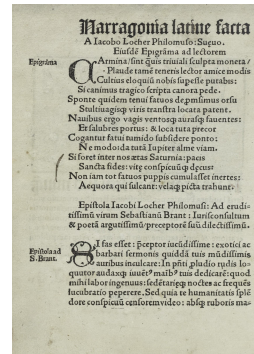 Narragonia latine facta
A Iacobo Locher Philomuso: Sueuo.
Eiusdē Epigrāma ad lectorem
Epigrāma
CArmina/sint quis triuiali sculpta moneta/
Plaude tamē teneris lector amice modis
Cultius eloquiū nobis supesse putabis:
Si canimus tragico scripta canore pede.
Sponte quidem tenui fatuos depmsimus orsu
Stultiuagisq viris transtra locata parent.
Nauibus ergo vagis ventosq aurasq fauentes:
Et salubres portus: & loca tuta precor
Cogantur fatui tumido subsidere ponto:
Ne modo da tutā Iupiter alme viam.
Si foret inter nos ætas Saturnia: pacis
Sancta fides: vitę conspicuūq decus:
Non iam tot fatuos puppis cumulasset inertes:
Aequora qui sulcant: velaq picta trahunt.
Epistola Iacobi Locher Philomusi: Ad erudi-
tissimū virum Sebastianū Brant: Iurisconsultum
& poetā argutissimū/pręceptorē suū dilectissimū.
Epistola ad
S. Brant.
SI fas esset: pręceptor iucūdissime: exotici ac
barbari sermonis quiddā tuis mūdissimis
auribus inculcare: In pñti pludio rudis lo-
quutor
mihi labor ingenuus: sedētariæq noctes ac freqñs
lucubratio peperere. Sed quia te humanitatis splē
dore conspicuū censoremvideo: absq ruboris ma-